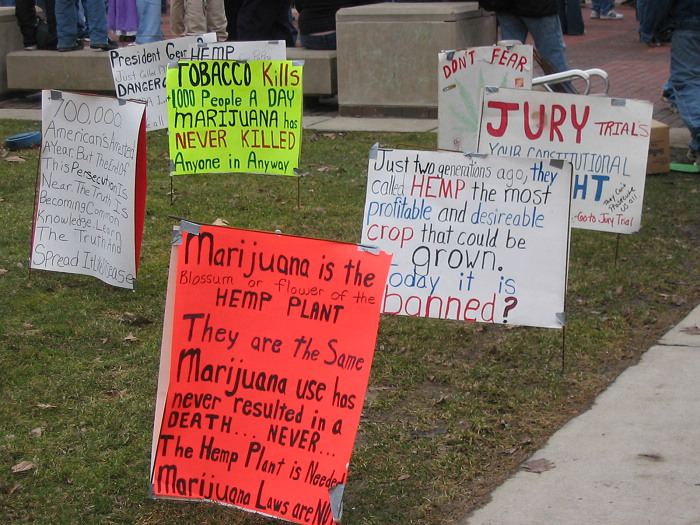 President Ge
HEMP
Just Called
DANGER
TOBACCO Kills
1,000 People A DAY
MARIJUANA has
NEVER KILLED
Anyone in Anyway
DON'T FEAR
JURY TRIALS
YOUR CONSTITUTIONAL
HT
They Can't
us all
- Go to Jury Trial
700,000
American's Arrested
A Year. But The End of
This Persecution Is
Near. The Truth Is
Becoming Common
Knowledge. Learn
The Truth And
Spread It Like Disease
Just two generations ago, they
called HEMP the most
profitable and desireable
crop that could be
grown.
Today it is
banned?
Marijuana is the
Blossum or flower of the
HEMP PLANT
They are the Same
Marijuana use has
never resulted in a
DEATH... NEVER...
The Hemp Plant is Needed
Marijuana Laws are